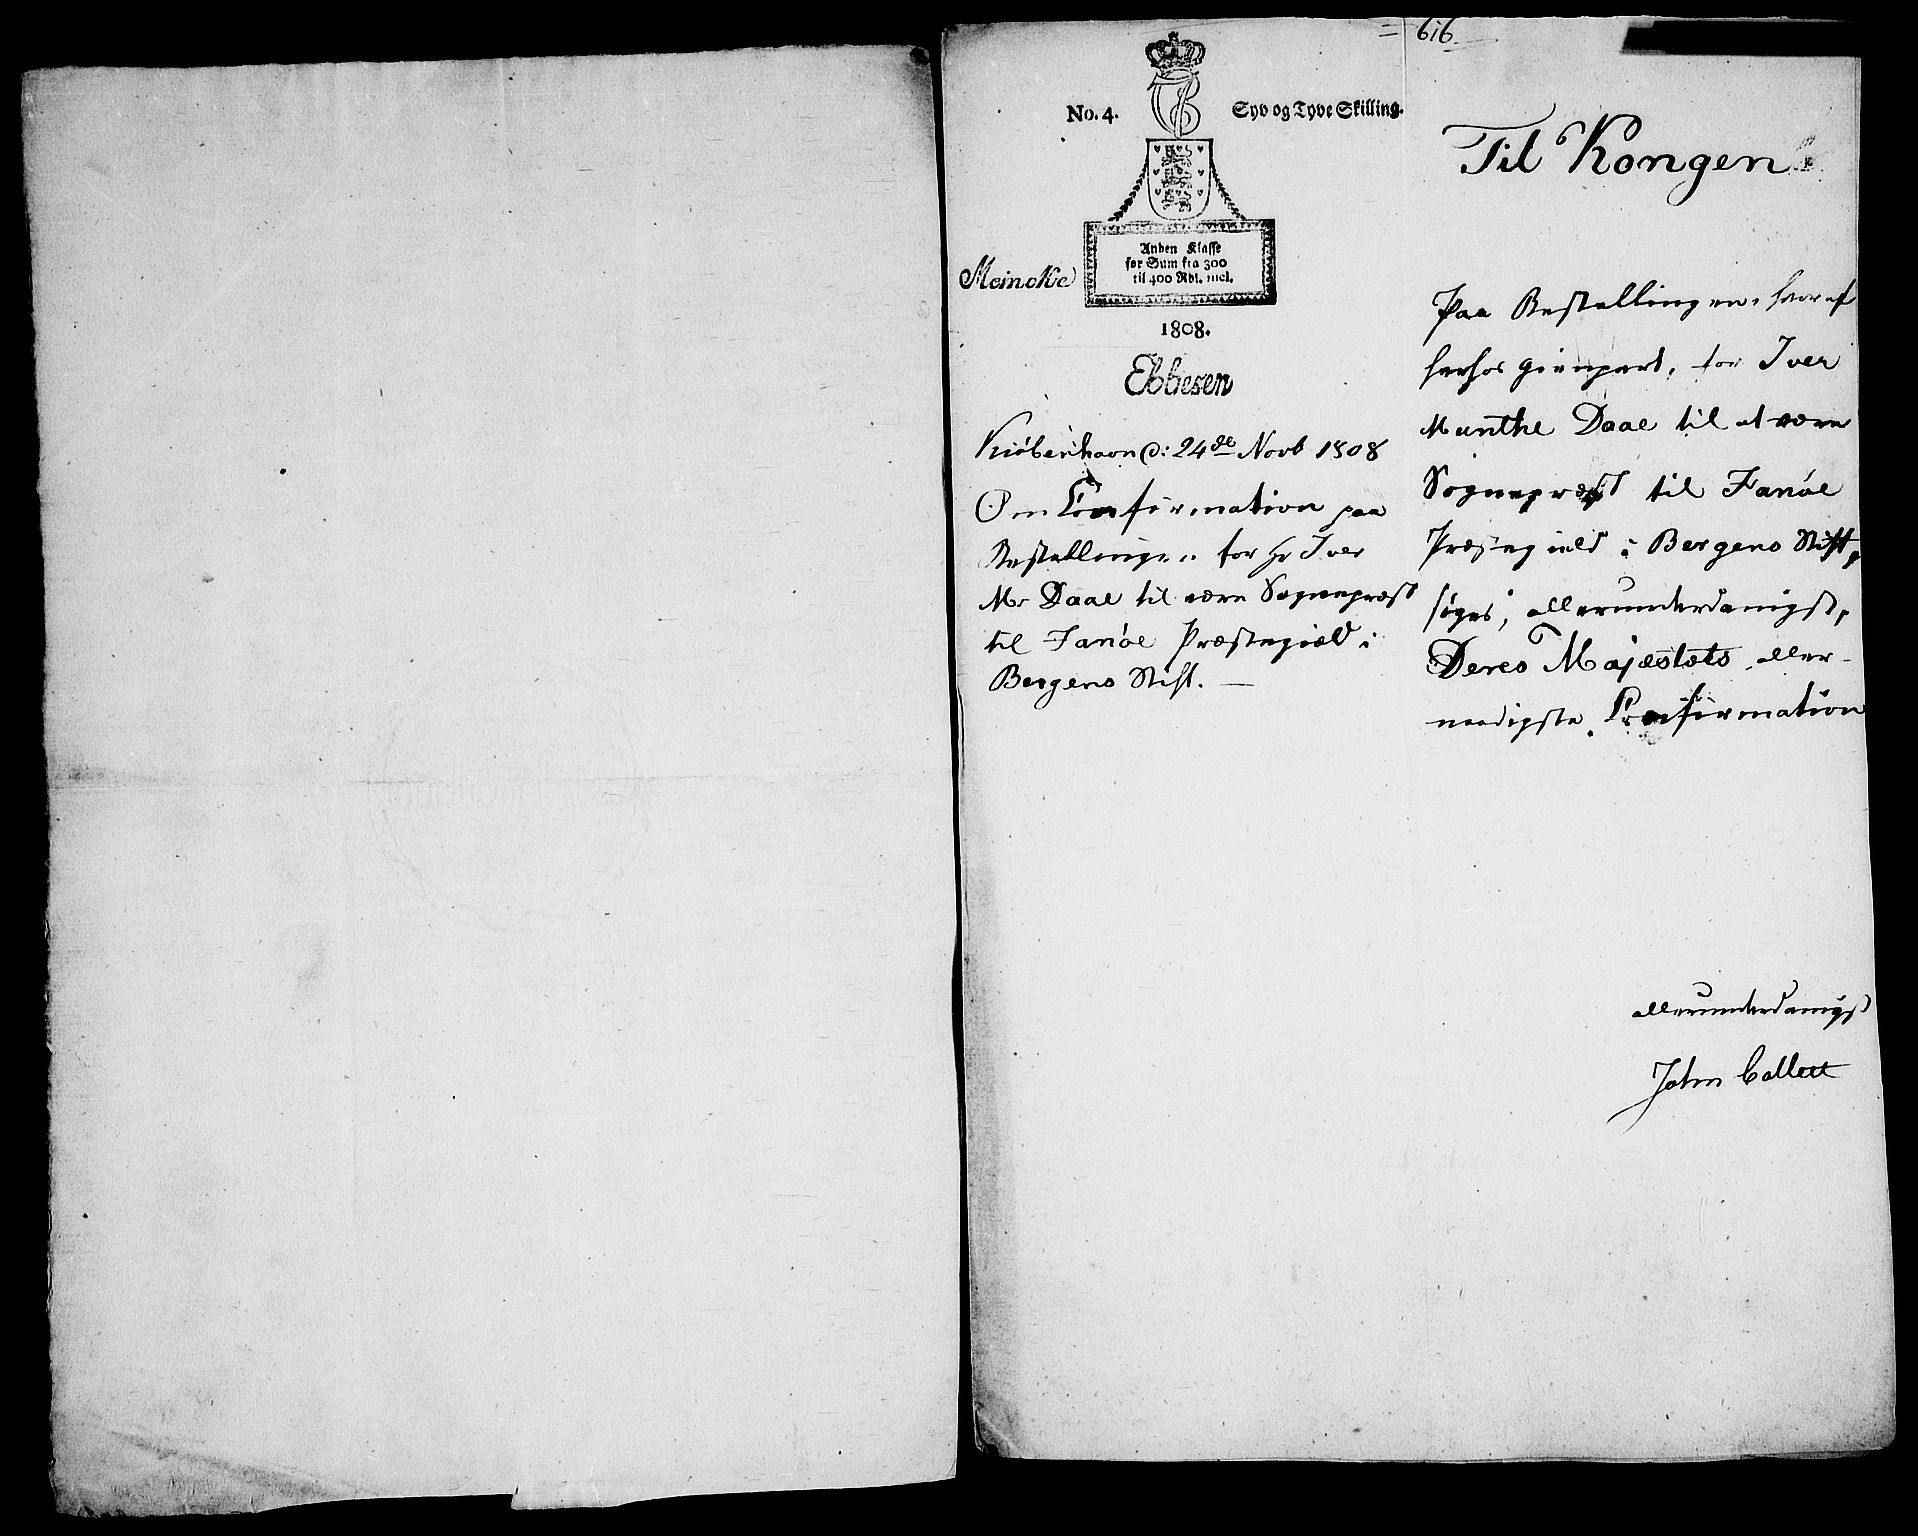 616
No. 4.
Syv og Tyve Skilling.
Anden Klasse
for Sum fra 300
til 400 Rdl. incl.
Meincke
1808.
Ebbesen
Kiöbenhavn d: 24de Novb 1808
Om Confirmation paa
Bestallingen for Hr Iver
M. Daae til være Sognepræst
til Fanöe Præstegield i
Bergens Stift. —
Til Kongen
Paa Bestallingen, hvoraf
herhos Gienpart, for Iver
Munthe Daae til at være
Sognepræst til Fanöe
Præstegield i Bergens Stift,
søges, allerunderdanigst,
Deres Majestæts aller-
naadigste Confirmation
allerunderdanigst
John Collett